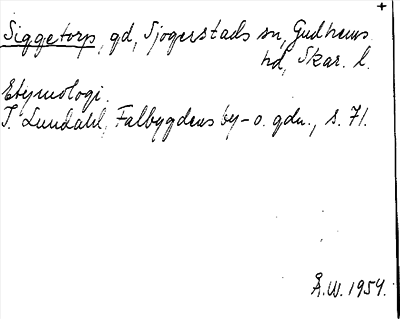 +
Siggetorp, gd, Sjogerstads sn, Gudhems
hd, Skar. l.
Etymologi.
I. Lundahl, Falbygdens by- o. gdn., s. 71.
Å.W. 1954.